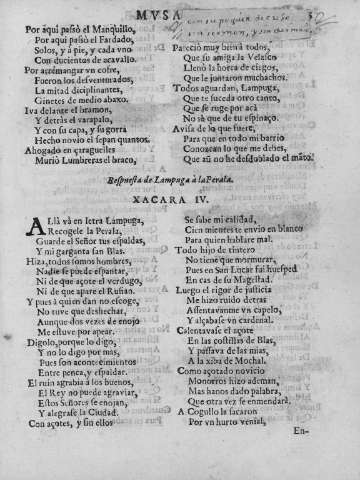 MVSA
Por aqui passò el Manquillo,
Por aqui passò el Fardado,
Solos, y à pie, y cada vno
Con ducientos de acavallo.
Por arremangar vn cofre,
Fueron los desventurados,
La mitad diciplinantes,
Ginetes de medio abaxo.
Iva delante el
Y detràs el varapalo,
Y con su capa, y su gorra
Hecho novio el sepan quantos.
Ahogado en çaraguelles
Muriò Lumbreras el braco,
Pareciò muy bien à todos,
Que su amiga la Velasco
Llenò la horca de ciegos,
Que le juntaron muchachos.
Todos aguardan, Lampuga,
Que te suceda otro tanto,
Que se ruge por acà
No sè que de tu espinaço.
Avisa de lo que fuere,
Para que en todo mi barrio
Conozcan lo que me debes,
Que aũ no he desdoblado el mãto.
Respuesta de Lampuga à la Perala.
XACARA IV.
ALlà và en letra Lampuga,
Recogele la Perala,
Guarde el Señor tus espaldas,
Y mi garganta san Blas.
Hiza, todos somos hombres,
Nadie se puede espantar,
Ni de que açote el verdugo,
Ni de que apare el Rufian.
Y pues à quien dan no escoge,
No tuve que deshechar,
Aunque dos vezes de enojo
Me estuve por apear.
Digolo, porque lo digo,
Y no lo digo por mas,
Pues son aconteçimientos
Entre penca, y espaldar.
El ruin agrabia à los buenos,
El Rey no puede agraviar,
Estos Señores se enojan,
Y alegrase la Ciudad.
Con açotes, y sin ellos
Se sabe mi calidad,
Cien mientes te envio en blanco
Para quien hablare mal.
Todo hijo de tintero
No tiene que mormurar,
Pues en San Lucar fui huesped
En cas de su Magestad.
Luego el rigor de justicia
Me hizo ruido detras
Assentavanme vn capelo,
Y alçabase vn cardenal.
Calentavase el açote
En las costillas de Blas,
Y pussava de las mias,
A la xiba de Mochal.
Como açotado novicio
Monorros hizo ademan,
Mas hanos dado palabra,
Que otra vez se enmendarà.
A Cogullo la sacaron
Por vn hurto venial,
En-